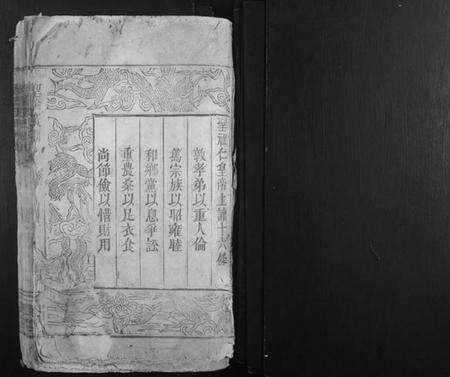 聖祖仁皇帝上諭十六條
敦孝弟以重人倫
篤宗族以昭雍睦
和鄉黨以息爭訟
重農桑以足衣食
尚節儉以惜財用